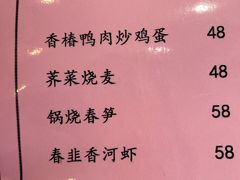 香椿鸭肉炒鸡蛋 48
荠菜烧麦 48
锅烧春笋 58
春韭香河虾 58